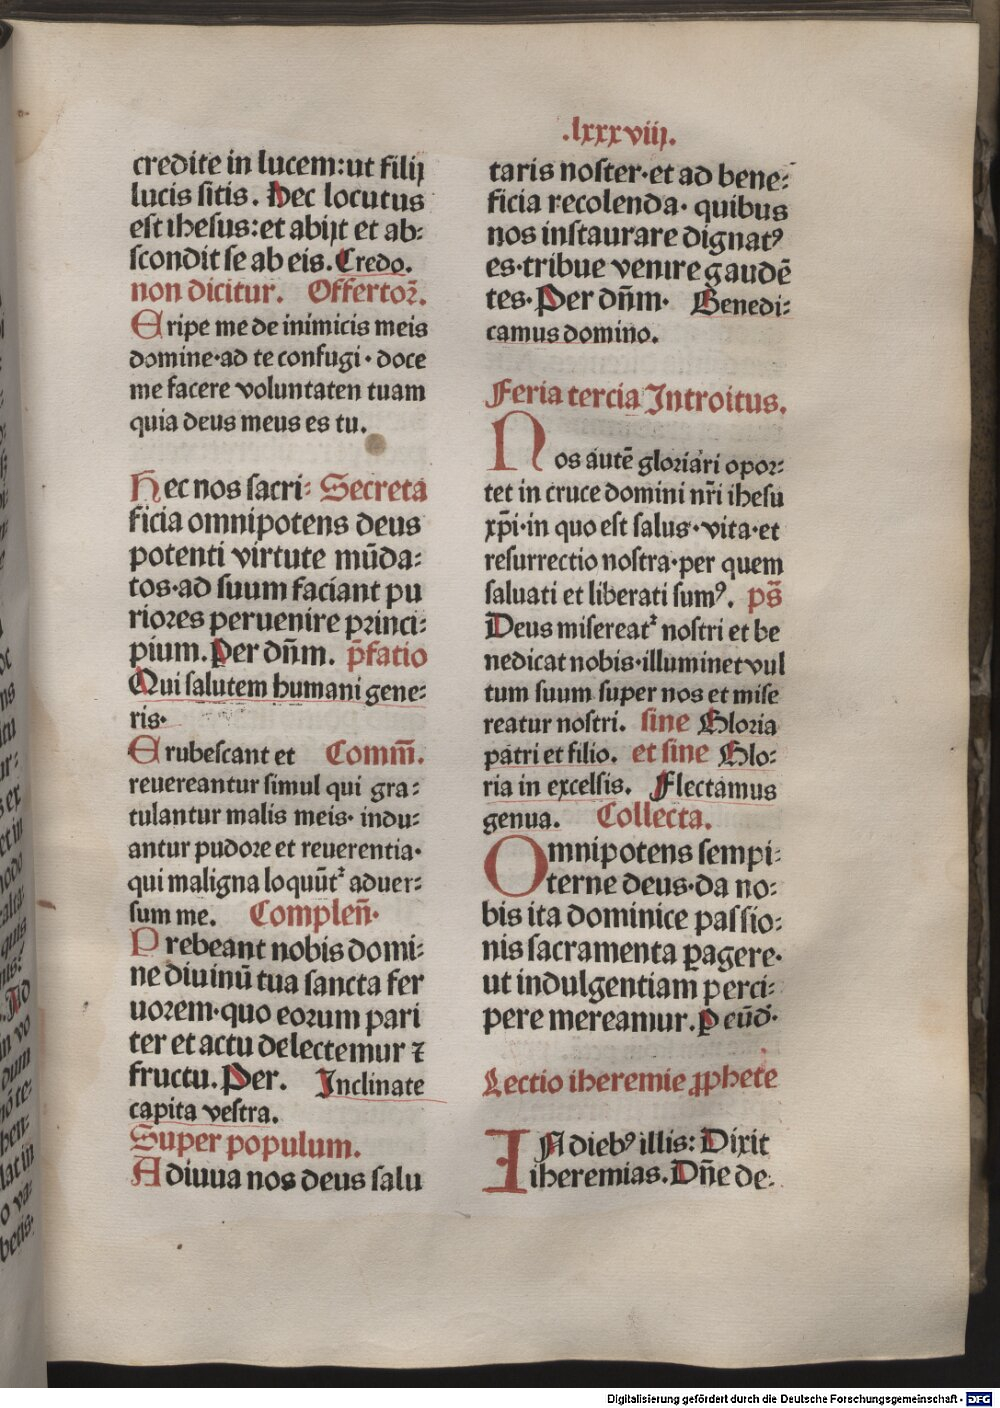 .lxxxviij.
credite in lucem: ut filij
lucis sitis. Hec locutus
est ihesus: et abijt et ab:
scondit se ab eis. Credo.
non dicitur. Offertoꝝ.
Eripe me de inimicis meis
domine·ad te confugi· doce
me facere voluntaten tuam
quia deus meus es tu.
Hec nos sacri: Secreta
ficia omnipotens deus
potenti virtute mūda:
tos·ad suum faciant pu
riores peruenire princi:
pium. Per dn̄m. p̄fatio
Qui salutem humani gene:
ris·
Erubescant et Com̄m̄.
reuereantur simul qui gra:
tulantur malis meis· indu:
antur pudore et reuerentia·
qui maligna loquūt᷑ aduer:
sum me. Complen̄·
Prebeant nobis domi:
ne diuinū tua sancta fer
uorem·quo eorum pari
ter et actu delectemur ⁊
fructu. Per. Inclinate
capita vestra.
Super populum.
Adiuua nos deus salu
taris noster·et ad bene:
ficia recolenda· quibus
nos instaurare dignatꝰ
es·tribue venire gaudē
tes·Per dn̄m· Benedi:
camus domino.
Feria tercia Introitus.
Nos autē gloriari opor:
tet in cruce domini nr̄i ihesu
xp̄i·in quo est salus·vita·et
resurrectio nostra·per quem
saluati et liberati sumꝰ. ps̄
Deus misereat᷑ nostri et be
nedicat nobis·illuminet vul
tum suum super nos et mise
reatur nostri. sine Gloria
patri et filio. et sine Glo:
ria in excelsis. Flectamus
genua. Collecta.
Omnipotens sempi:
terne deus·da no:
bis ita dominice passio:
nis sacramenta ꝑagere·
ut indulgentiam perci:
pere mereamur. ꝑ eūd·
Lectio iheremie ꝓphete
IN diebꝰ illis: Dixit
iheremias. Dn̄e de:
Digitalisierung gefördert durch die Deutsche Forschungsgemeinschaft - DFG